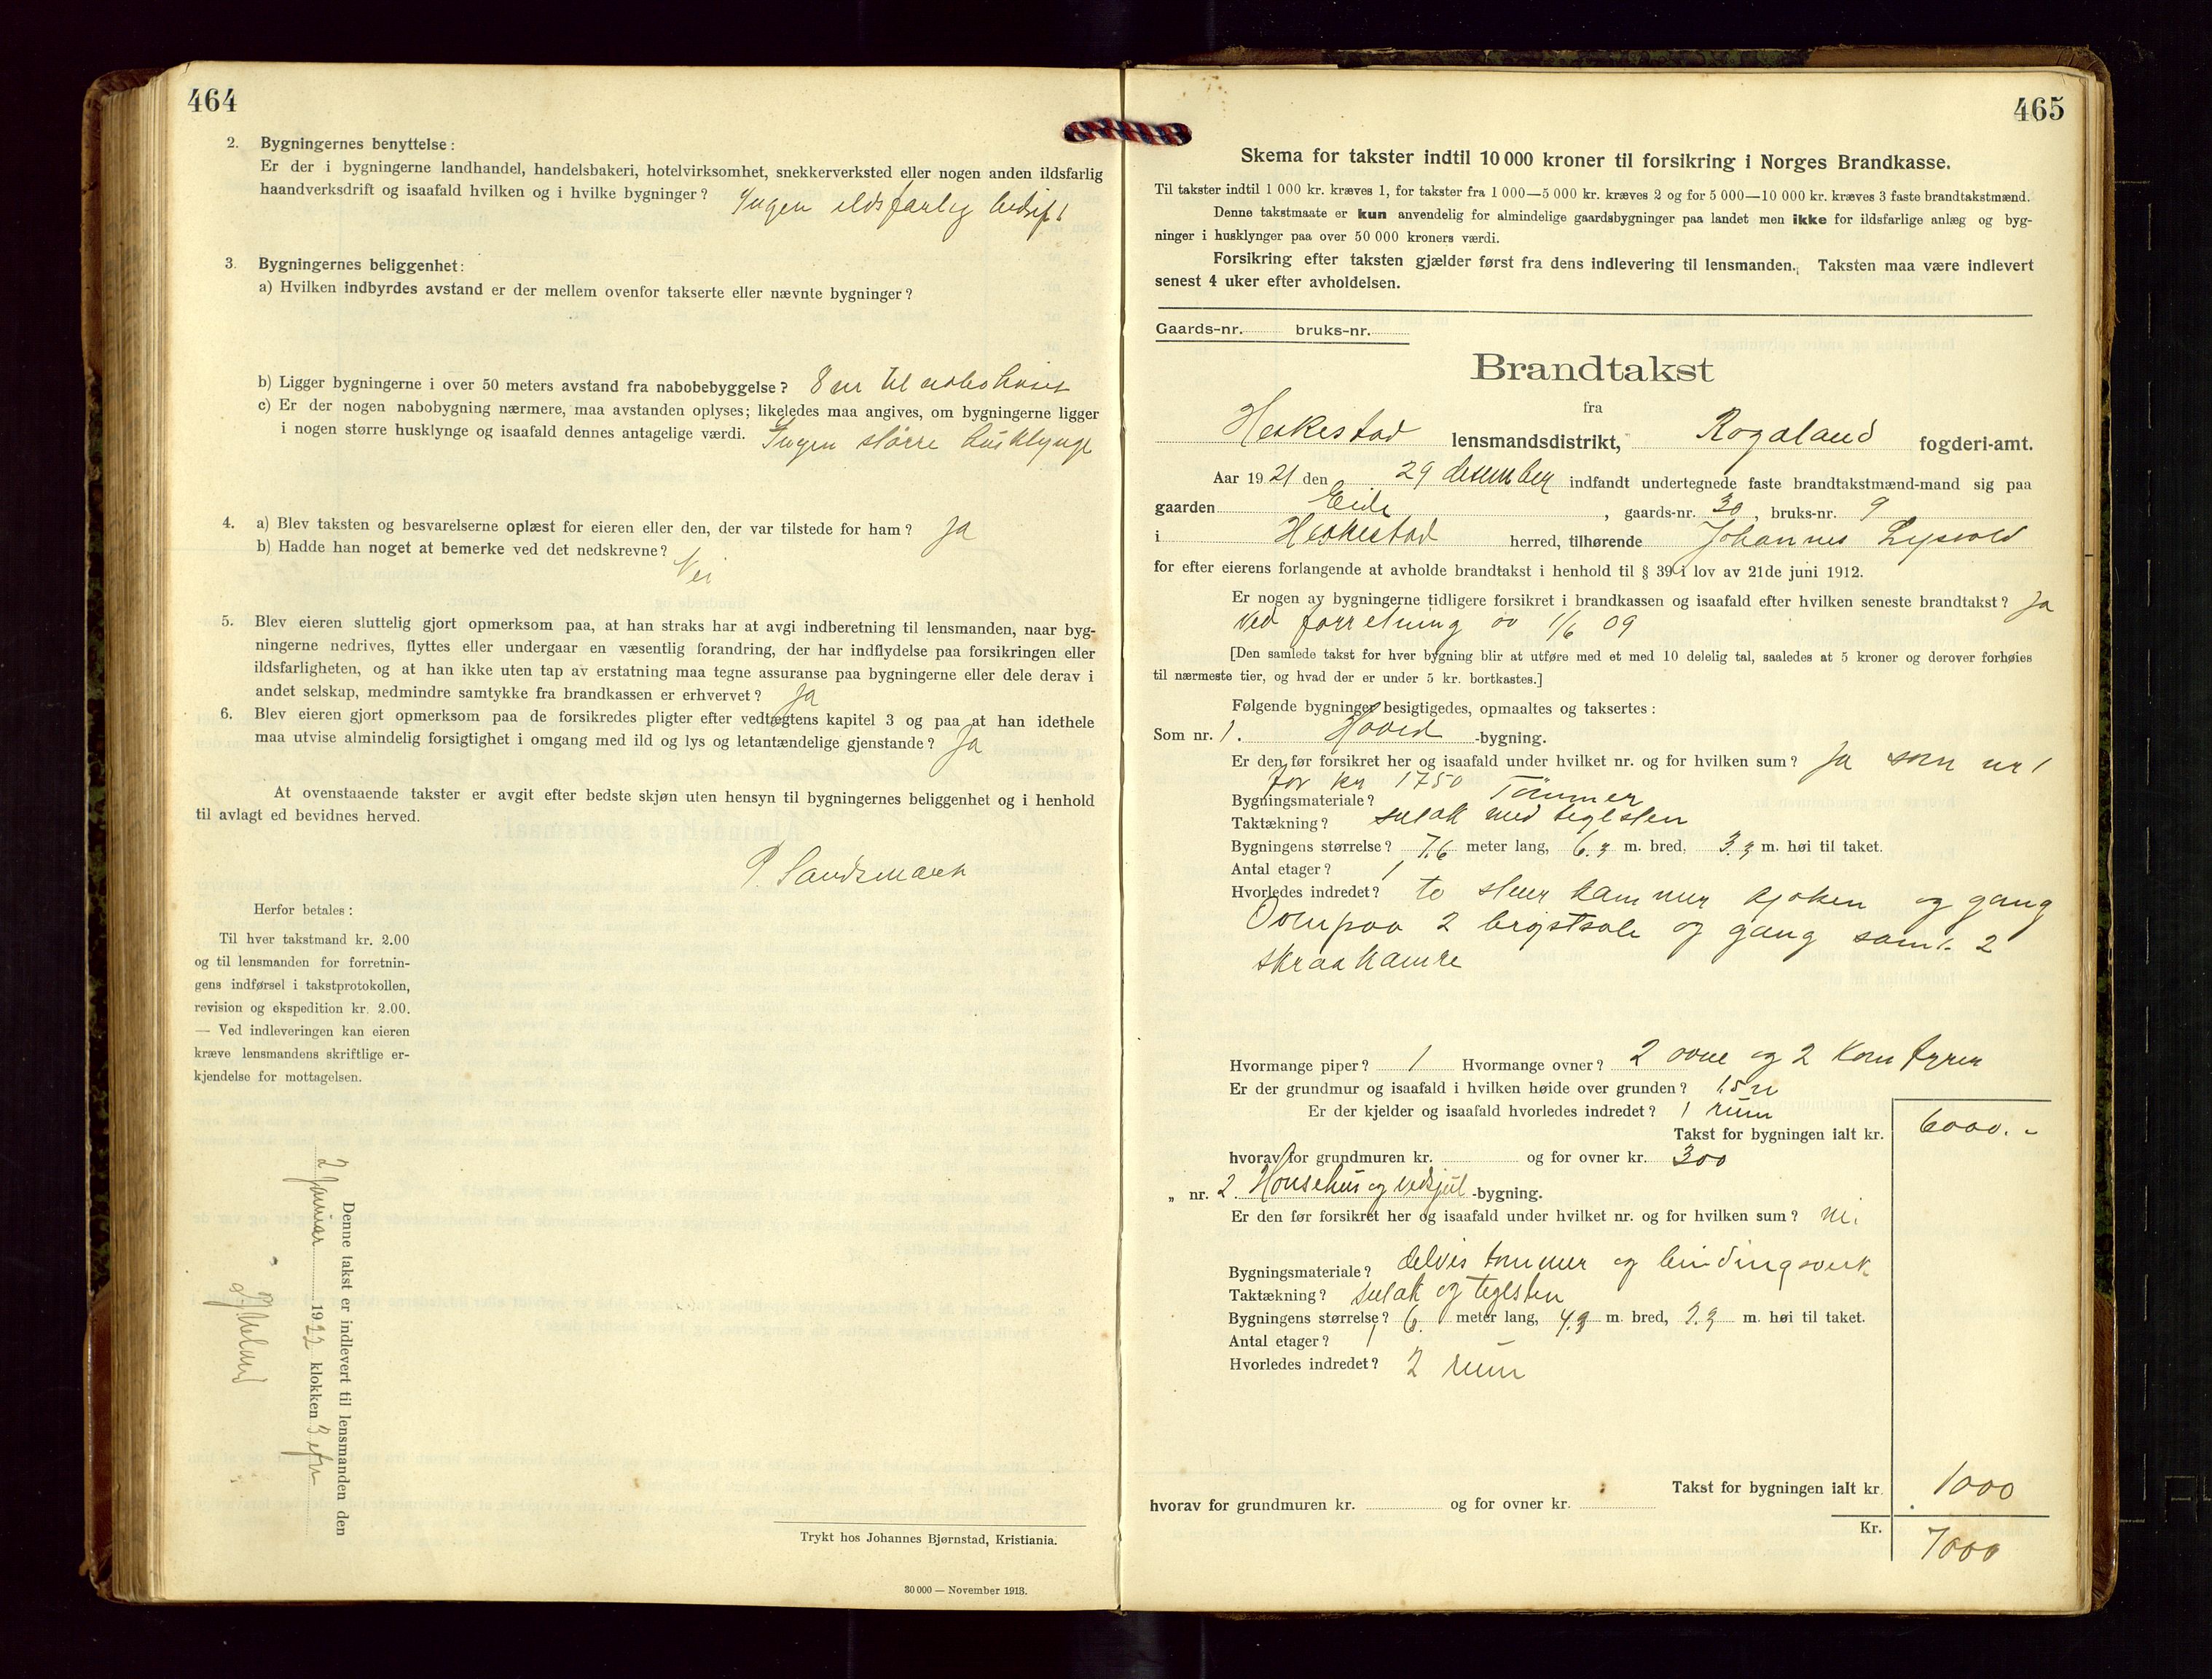 464
2. Bygningernes benyttelse:
Er der i bygningerne landhandel, handelsbakeri, hotelvirksomhet, snekkerverksted eller nogen anden ildsfarlig
haandverksdrift og isaafald hvilken og i hvilke bygninger? Ingen ildsfarlig bedrift
3. Bygningernes beliggenhet:
a) Hvilken indbyrdes avstand er der mellem ovenfor takserte eller nævnte bygninger?
b) Ligger bygningerne i over 50 meters avstand fra nabobebyggelse? 8 m til nabohuset
c) Er der nogen nabobygning nærmere, maa avstanden oplyses; likeledes maa angives, om bygningerne ligger
i nogen større husklynge og isaafald dennes antagelige værdi. Ingen större husklynge
4. a) Blev taksten og besvarelserne oplæst for eieren eller den, der var tilstede for ham? Ja
b) Hadde han noget at bemerke ved det nedskrevne? Nei
5. Blev eieren sluttelig gjort opmerksom paa, at han straks har at avgi indberetning til lensmanden, naar byg-
ningerne nedrives, flyttes eller undergaar en væsentlig forandring, der har indflydelse paa forsikringen eller
ildsfarligheten, og at han ikke uten tap av erstatning maa tegne assuranse paa bygningerne eller dele derav i
andet selskap, medmindre samtykke fra brandkassen er erhvervet? Ja
6. Blev eieren gjort opmerksom paa de forsikredes pligter efter vedtægtens kapitel 3 og paa at han idethele
maa utvise almindelig forsigtighet i omgang med ild og lys og letantændelige gjenstande? Ja
At ovenstaaende takster er avgit efter bedste skjøn uten hensyn til bygningernes beliggenhet og i henhold
til avlagt ed bevidnes herved.
P. Sandsmark
Herfor betales:
Til hver takstmand kr. 2.00
og til lensmanden for forretnin-
gens indførsel i takstprotokollen,
revision og ekspedition kr. 2.00.
— Ved indleveringen kan eieren
kræve lensmandens skriftlige er-
kjendelse for mottagelsen.
Denne takst er indlevert til lensmanden den
2 Januar 1922 klokken 3 efm
Trykt hos Johannes Bjørnstad, Kristiania.
30 000 — November 1913.
465
Skema for takster indtil 10 000 kroner til forsikring i Norges Brandkasse.
Til takster indtil 1 000 kr. kræves 1, for takster fra 1 000—5 000 kr. kræves 2 og for 5 000—10 000 kr. kræves 3 faste brandtakstmænd.
Denne takstmaate er kun anvendelig for almindelige gaardsbygninger paa landet men ikke for ildsfarlige anlæg og byg-
ninger i husklynger paa over 50 000 kroners værdi.
Forsikring efter taksten gjælder først fra dens indlevering til lensmanden. Taksten maa være indlevert
senest 4 uker efter avholdelsen.
Gaards-nr. bruks-nr.
Brandtakst
fra
Heskestad lensmandsdistrikt, Rogaland fogderi-amt.
Aar 1921 den 29 desember indfandt undertegnede faste brandtakstmænd-mand sig paa
gaarden Eide, gaards-nr. 30, bruks-nr. 9
i Heskestad herred, tilhørende Johannes
for efter eierens forlangende at avholde brandtakst i henhold til § 39 i lov av 21de juni 1912.
Er nogen av bygningerne tidligere forsikret i brandkassen og isaafald efter hvilken seneste brandtakst? Ja
Ved forretning av 1/6 09
[Den samlede takst for hver bygning blir at utføre med et med 10 delelig tal, saaledes at 5 kroner og derover forhøies
til nærmeste tier, og hvad der er under 5 kr. bortkastes.]
Følgende bygninger besigtigedes, opmaaltes og taksertes:
Som nr. 1. Hoved-bygning.
Er den før forsikret her og isaafald under hvilket nr. og for hvilken sum? Ja som nr 1
for kr 1750
Bygningsmateriale? Tömmer
Taktækning? sutak med teglsten
Bygningens størrelse? 7.6 meter lang, 6.3 m. bred, 3.3 m. høi til taket.
Antal etager? 1
Hvorledes indredet? to stuer kammer kjöken og gang
Ovenpaa 2 brystsale og gang samt 2
skraakamre
Hvormange piper? 1 Hvormange ovner? 2 ovne og 2 komfyrer
Er der grundmur og isaafald i hvilken høide over grunden? 1.5 m
Er der kjelder og isaafald hvorledes indredet? 1 rum
Takst for bygningen ialt kr. 6000.-
hvorav for grundmuren kr. og for ovner kr. 300
„ nr. 2. Hönsehus og vedskjul-bygning.
Er den før forsikret her og isaafald under hvilket nr. og for hvilken sum? nei
Bygningsmateriale? delvis tömmer og bindingsverk
Taktækning? sutak og teglsten
Bygningens størrelse? 6. meter lang, 4.3 m. bred, 2.3 m. høi til taket.
Antal etager? 1
Hvorledes indredet? 2 rum
Takst for bygningen ialt kr. 1000
hvorav for grundmuren kr. og for ovner kr.
Kr. 7000